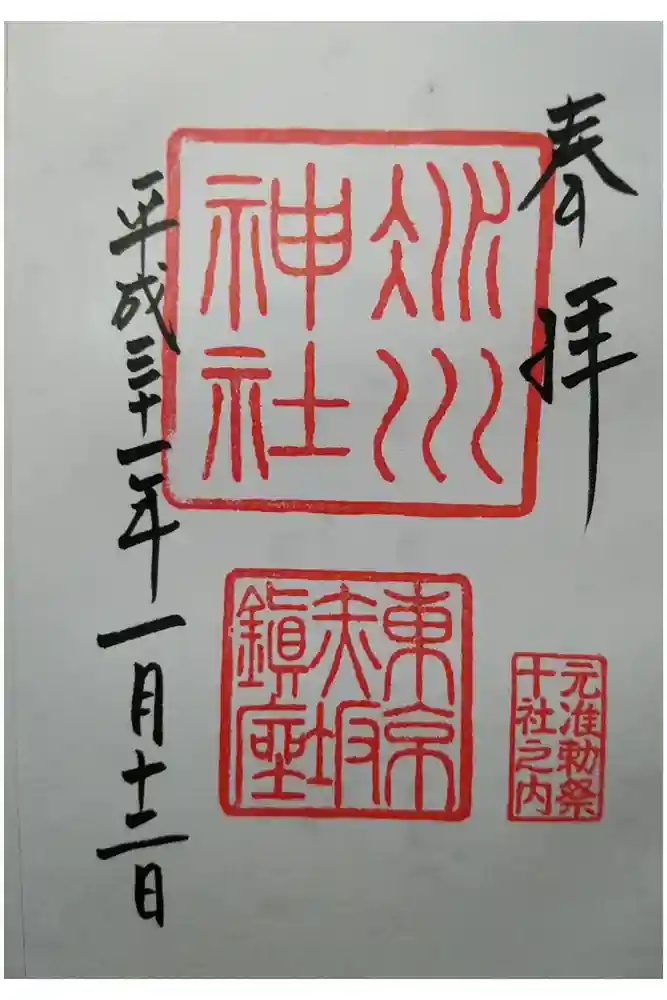 奉拝
氷川
神社
東京
赤坂
鎮座
元准勅祭
十社之内
平成三十一年一月十二日